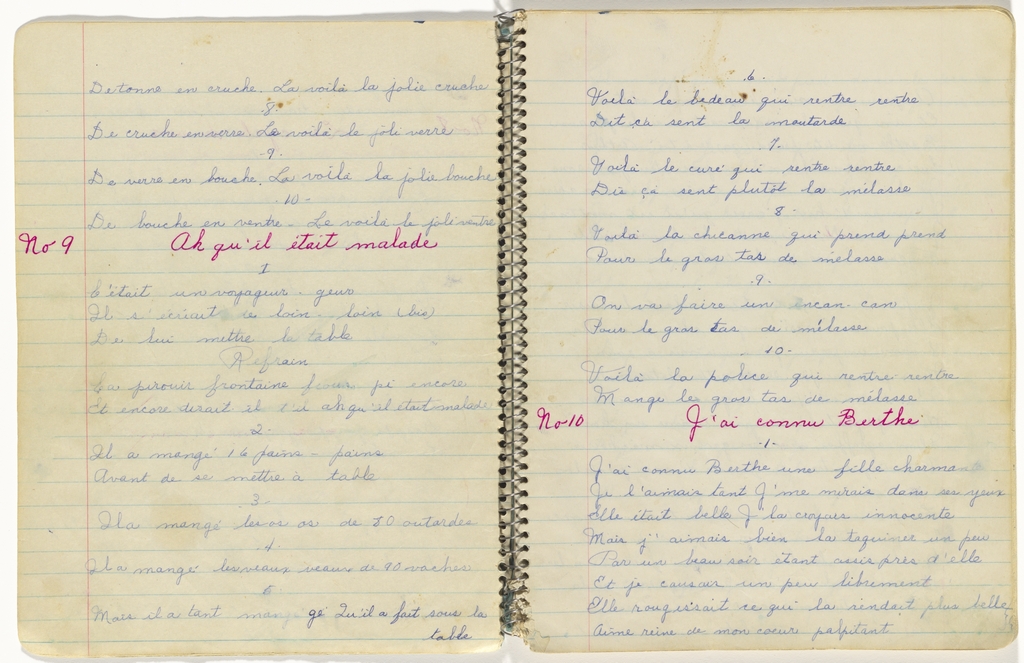 De tonne en cruche. La voilà la jolie cruche
.8.
De cruche en verre. Le voilà le joli verre
-9-
De verre en bouche. La voilà la jolie bouche
-10-
De bouche en ventre - Le voilà le joli ventre
No 9 Ah qu'il était malade
1
C'était un voyageur - geur
Il s'écriait de loin - loin (bis)
De lui mettre la table
Refrain
La frontaine pi encore
Et encore dirait il ah qu'il était malade
2-
Il a mangé 16 pains - pains
Avant de se mettre à table
3-
Il a mangé les os os de 80 outardes
-4-
Il a mangé les veaux veaux de 90 vaches
5
Mais il a tant mangé gé Qu'il a fait sous la
table
.6.
Voilà le bedeau qui rentre rentre
Dit ça sent la moutarde
7-
Voilà le curé qui rentre rentre
Dis ça sent plutôt la mélasse
8-
Voilà la chicanne qui prend prend
Pour le gros tas de mélasse
.9.
On va faire un encan - can
Pour le gros tas de mélasse
-10-
Voilà la police qui rentre rentre
Mange le gros tas de mélasse
No 10 J'ai connu Berthe
-1-
J'ai connu Berthe une fille charmante
Je l'aimais tant J'me mirais dans ses yeux
Elle était belle J la croyais innocente
Mais j'aimais bien la taquiner un peu
Par un beau soir étant assis près d'elle
Et je causais un peu librement
Elle rougissait ce qui la rendait plus belle
Aime reine de mon coeur palpitant